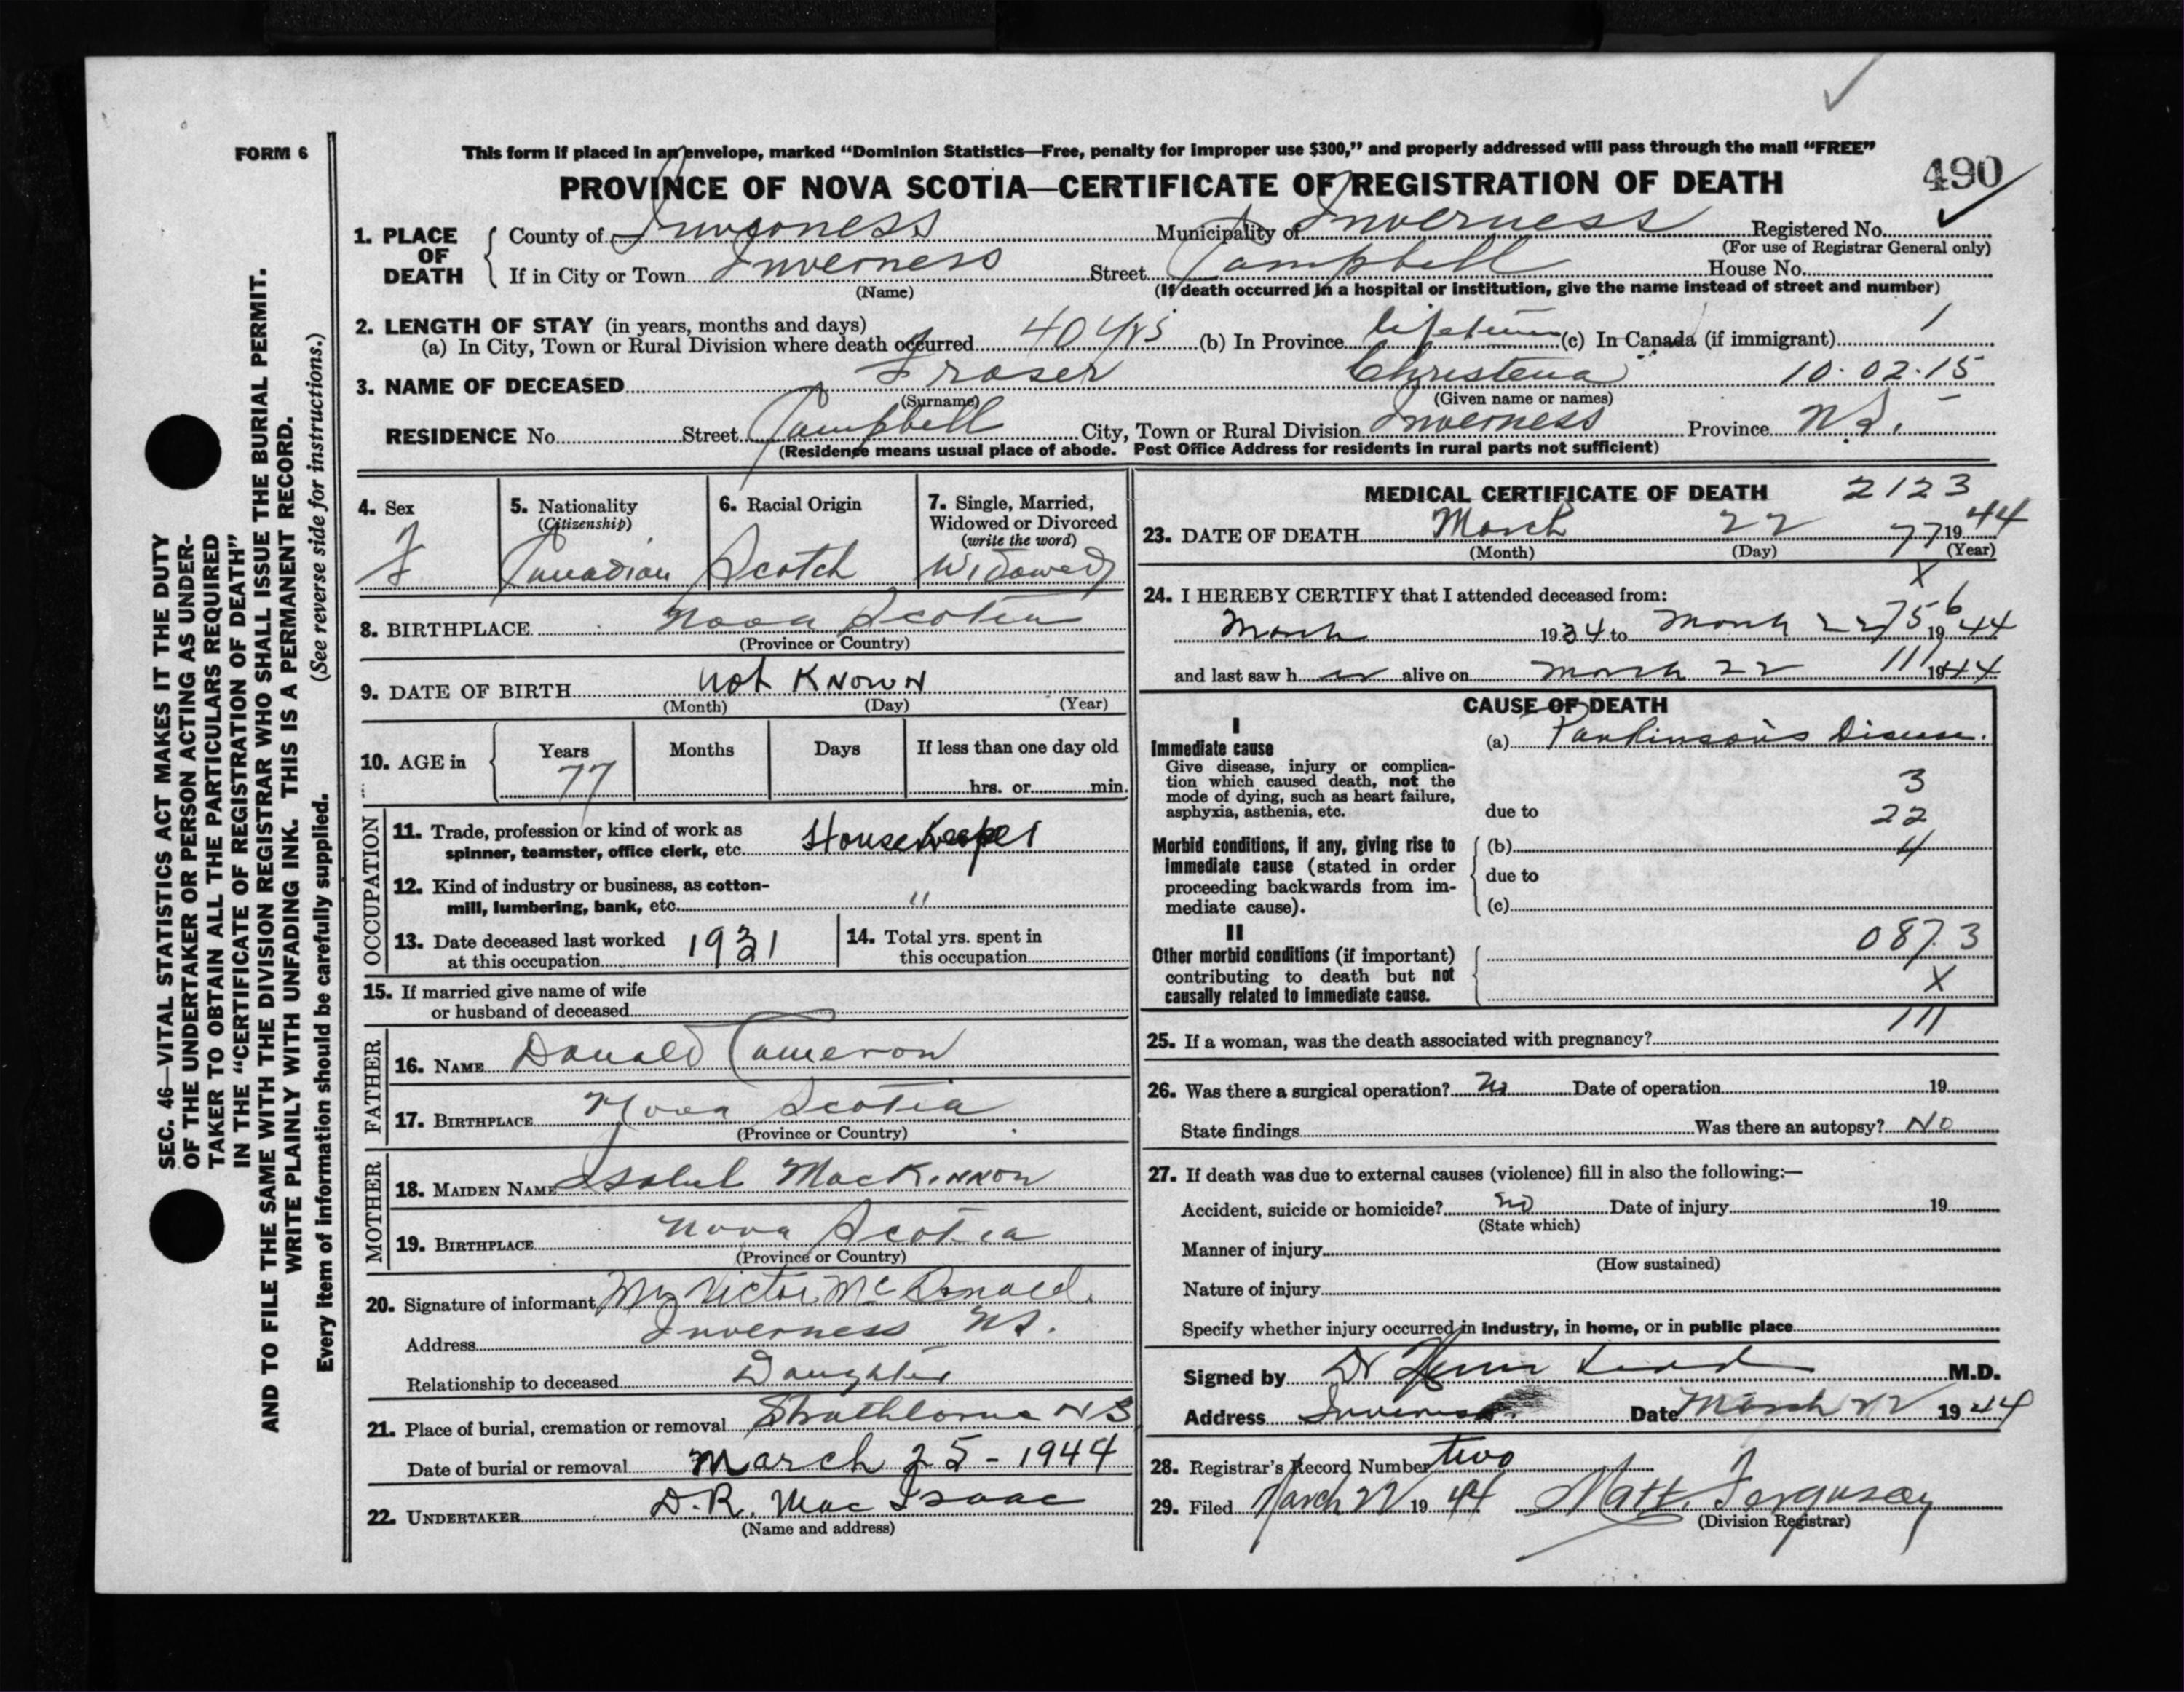 FORM 6
This form if placed in an envelope, marked “Dominion Statistics—Free, penalty for improper use $300,” and properly addressed will pass through the mail “FREE”
PROVINCE OF NOVA SCOTIA—CERTIFICATE OF REGISTRATION OF DEATH
490
1. PLACE OF DEATH
County of Inverness Municipality of Inverness Registered No.
(For use of Registrar General only)
If in City or Town Inverness Street Campbell House No.
(Name) (If death occurred in a hospital or institution, give the name instead of street and number)
2. LENGTH OF STAY (in years, months and days)
(a) In City, Town or Rural Division where death occurred 40 yrs (b) In Province lifetime (c) In Canada (if immigrant)
3. NAME OF DECEASED Fraser Christena 10.02.15
(Surname) (Given name or names)
RESIDENCE No. Street Campbell City, Town or Rural Division Inverness Province N.S.
(Residence means usual place of abode. Post Office Address for residents in rural parts not sufficient)
4. Sex
F
5. Nationality
(Citizenship)
Canadian
6. Racial Origin
Scotch
7. Single, Married,
Widowed or Divorced
(write the word)
Widowed
8. BIRTHPLACE Nova Scotia
(Province or Country)
9. DATE OF BIRTH not Known
(Month) (Day) (Year)
10. AGE in
Years Months Days If less than one day old
77
hrs. or min.
OCCUPATION
11. Trade, profession or kind of work as
spinner, teamster, office clerk, etc. Housekeeper
12. Kind of industry or business, as cotton-
mill, lumbering, bank, etc. "
13. Date deceased last worked
at this occupation 1931
14. Total yrs. spent in
this occupation
15. If married give name of wife
or husband of deceased
FATHER
16. NAME Donald Cameron
17. BIRTHPLACE Nova Scotia
(Province or Country)
MOTHER
18. MAIDEN NAME Isabel MacKinnon
19. BIRTHPLACE Nova Scotia
(Province or Country)
20. Signature of informant Mrs Victor McDonald.
Address Inverness NS.
Relationship to deceased Daughter
21. Place of burial, cremation or removal Strathlorne NS
Date of burial or removal March 25 - 1944
22. UNDERTAKER D.R. MacIsaac
(Name and address)
MEDICAL CERTIFICATE OF DEATH 2123
23. DATE OF DEATH March 22 77 1944
(Month) (Day) (Year)
X
24. I HEREBY CERTIFY that I attended deceased from:
March 1934 to March 22 756 1944
and last saw her alive on March 22 111 1944
CAUSE OF DEATH
I
Immediate cause
Give disease, injury or complica-
tion which caused death, not the
mode of dying, such as heart failure,
asphyxia, asthenia, etc.
(a) Parkinson's Disease.
3
due to 22
Morbid conditions, if any, giving rise to
immediate cause (stated in order
proceeding backwards from im-
mediate cause).
(b) 4
due to
(c)
II
Other morbid conditions (if important)
contributing to death but not
causally related to immediate cause.
087.3
X
111
25. If a woman, was the death associated with pregnancy?
26. Was there a surgical operation? No Date of operation 19
State findings Was there an autopsy? No
27. If death was due to external causes (violence) fill in also the following:—
Accident, suicide or homicide? no Date of injury 19
(State which)
Manner of injury
(How sustained)
Nature of injury
Specify whether injury occurred in industry, in home, or in public place
Signed by Dr M.D.
Address Inverness Date March 22 1944
28. Registrar's Record Number two
29. Filed March 22 1944 Matt. Ferguson
(Division Registrar)
SEC. 46—VITAL STATISTICS ACT MAKES IT THE DUTY
OF THE UNDERTAKER OR PERSON ACTING AS UNDER-
TAKER TO OBTAIN ALL THE PARTICULARS REQUIRED
IN THE “CERTIFICATE OF REGISTRATION OF DEATH”
AND TO FILE THE SAME WITH THE DIVISION REGISTRAR WHO SHALL ISSUE THE BURIAL PERMIT.
WRITE PLAINLY WITH UNFADING INK. THIS IS A PERMANENT RECORD.
Every item of information should be carefully supplied. (See reverse side for instructions.)